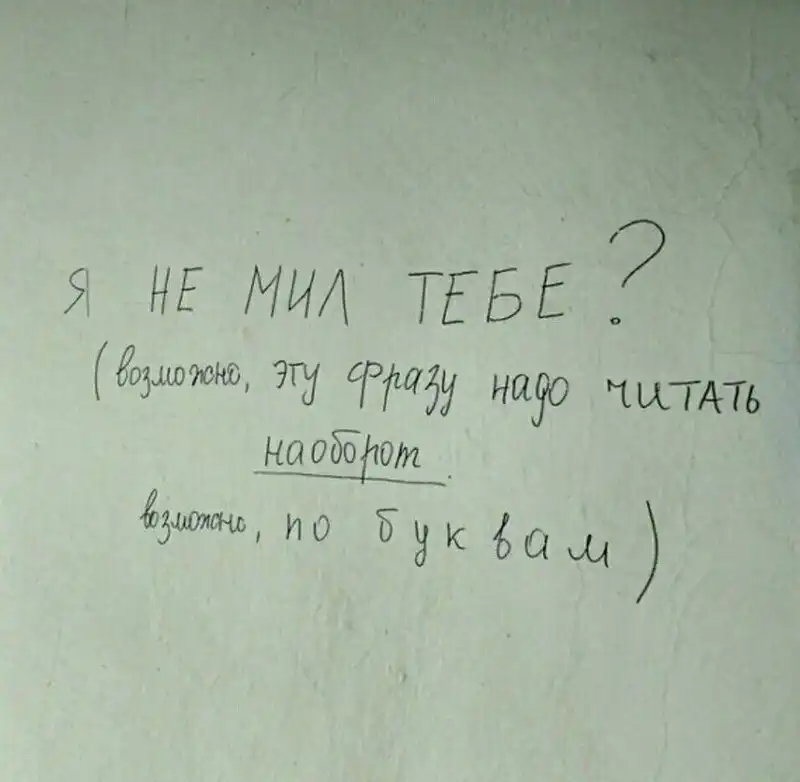 Я НЕ МИЛ ТЕБЕ?
(возможно, эту фразу надо читать
наоборот.
возможно, по буквам)